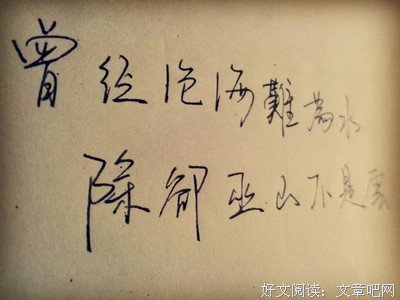 曾经沧海難為水
除卻巫山不是雲
好文阅读：文章吧网